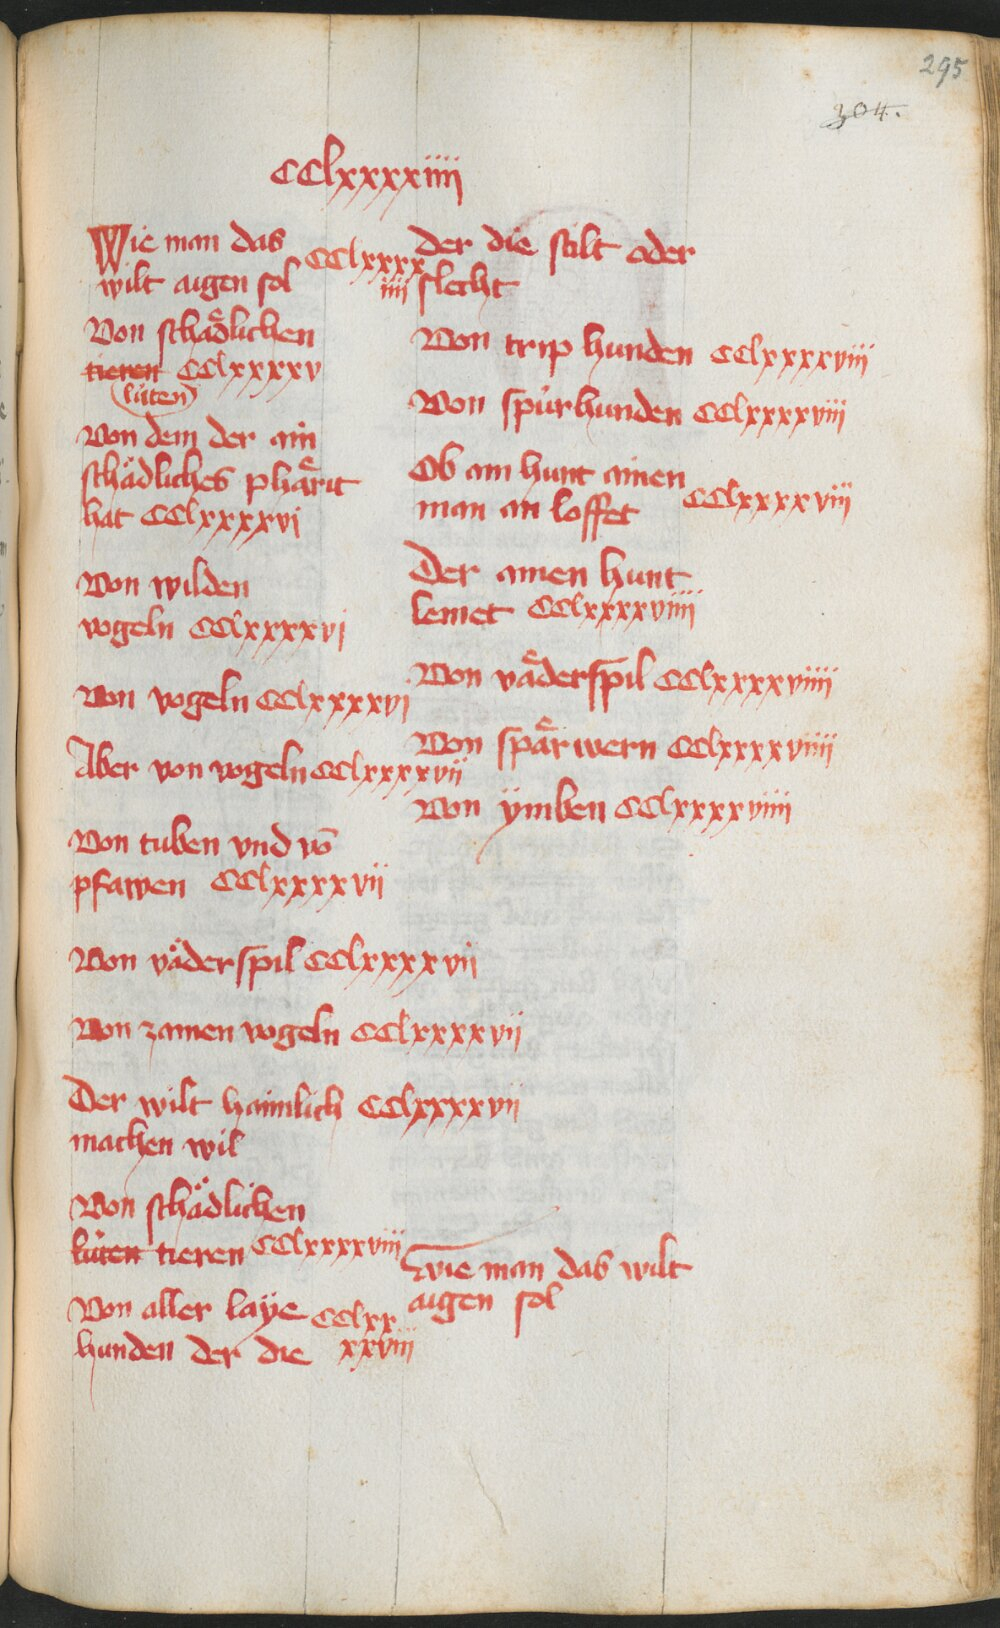 295
304.
CClxxxxiiii
Wie man das CClxxxx
wilt aigen sol iiii
Von schaͤdlichen
tieren CClxxxxv
(lúten)
Von dem der ain
schädliches phaͤrit
hat CClxxxxvi
Von wilden
vogeln CClxxxxvi
Von vogeln CClxxxxvi
Aber von vogeln CClxxxxvii
Von tuben vnd vō
pfawen CClxxxxvii
Von väderspil CClxxxxvii
Von zamen vogeln CClxxxxvii
Der wilt haimlich CClxxxxvii
machen wil
Von schädlichen
lúten tieren CClxxxxviii
Von aller laÿe CClxx
hunden der die xxviii
der die stilt oder
slecht
Von trip hunden CClxxxxviii
Von spúrhunden CClxxxxviii
Ob ain hunt ainen
man an loffet CClxxxxviii
Der ainen hunt
lemet CClxxxxviiii
Von vaͤderspil CClxxxxviiii
Von spaͤrwern CClxxxxviiii
Von ÿmben CClxxxxviiii
Wie man das wilt
aigen sol